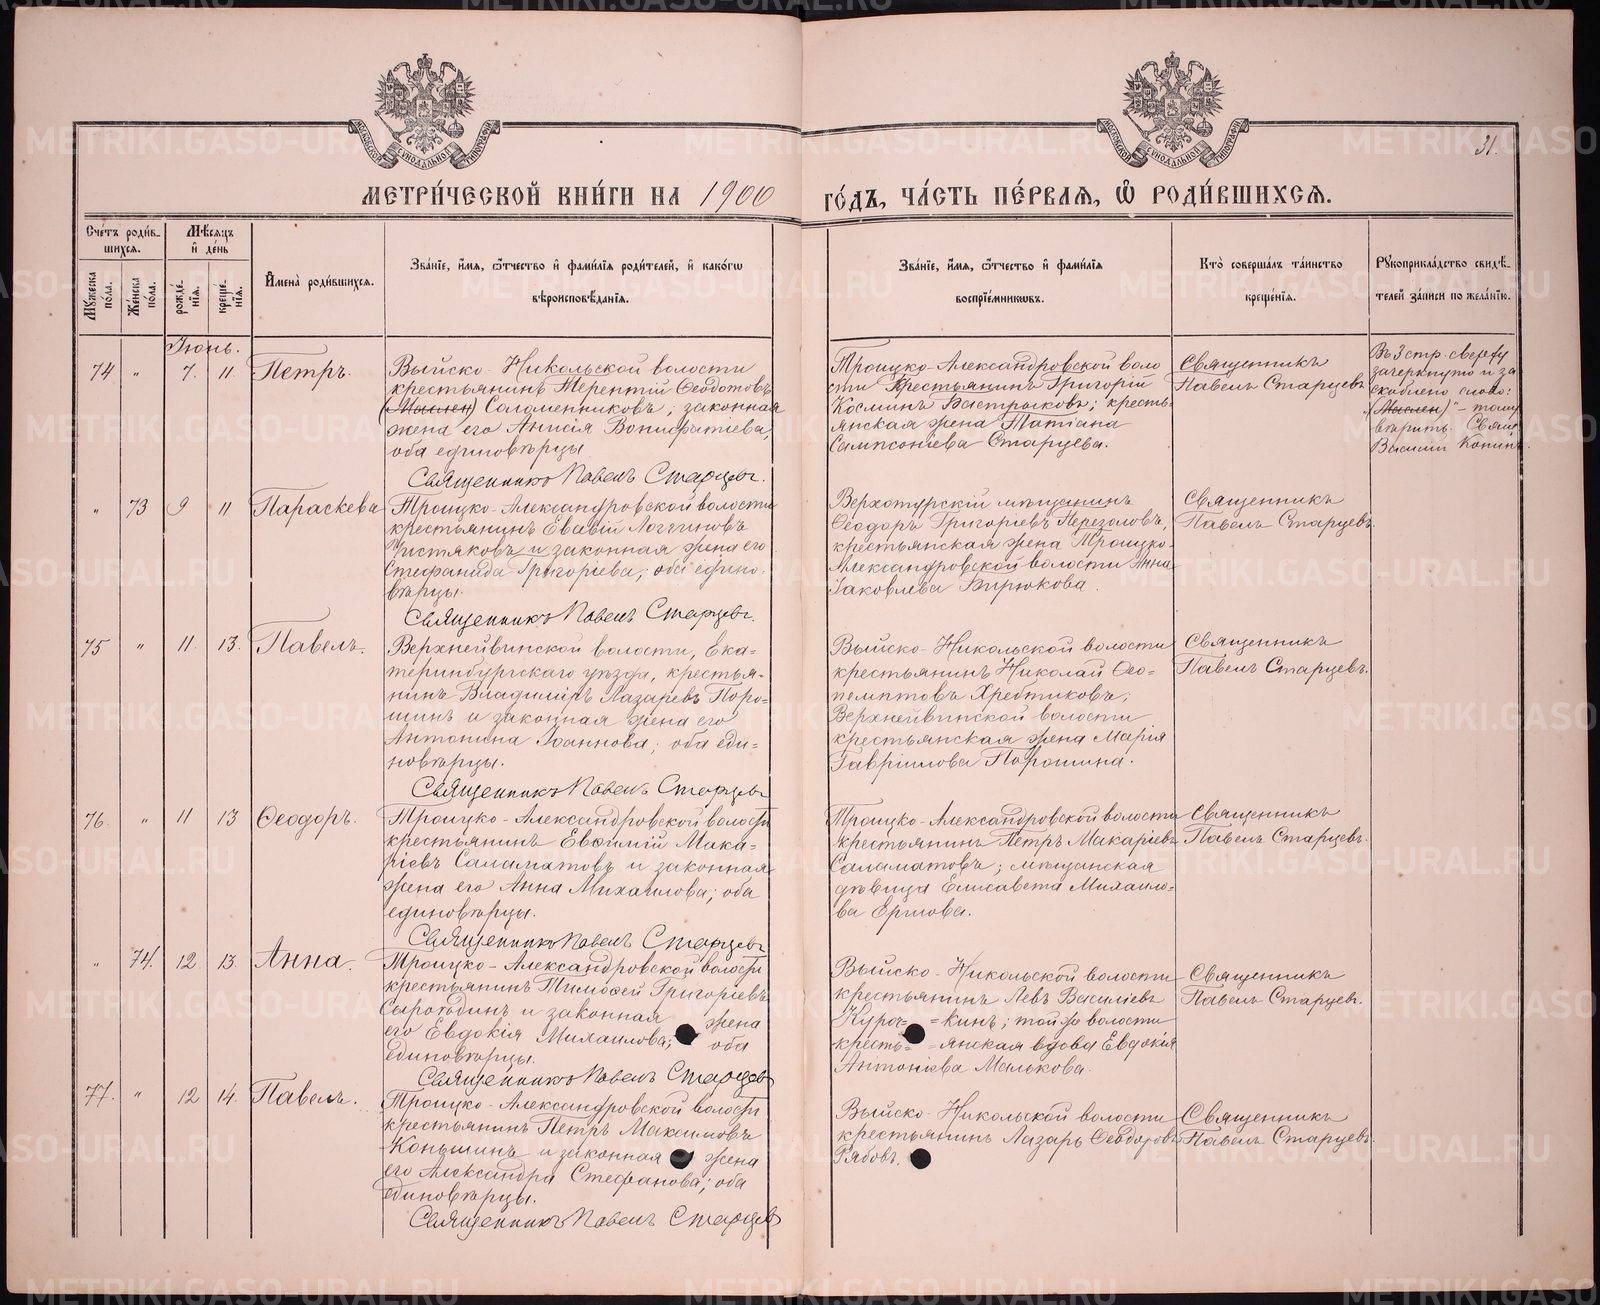 МЕТРИ́ЧЕСКОЙ КНИ́ГИ НА 1900 ГО́ДЪ, ЧА́СТЬ ПЕ́РВАЯ, Ѡ҆ РОДИ́ВШИХСЯ.
31.
Сче́тъ роди́в-
шихся.
Му́жеска пола.
Же́нска пола.
Мѣ́сяцъ
и҆ де́нь
рожде́-
нїѧ.
креще́-
нїѧ.
И҆мена̀ роди́вшихся.
Зва́нїе, и҆́мѧ, ѻ҆́тчество и҆ фами́лїѧ роди́телей, и҆ како́гѡ
вѣроисповѣ́данїѧ.
Зва́нїе, и҆́мѧ, ѻ҆́тчество и҆ фами́лїѧ
воспрїе́мникѡвъ.
Кто̀ соверша́лъ та́инство
креще́нїѧ.
Рꙋкоприкла́дство свидѣ́-
телей за́писи по жела́нїю.
Іюнь.
74 " 7. 11. Петръ.
Выйско-Никольской волости
крестьянинъ Терентій Ѳеодотовъ
Саломенниковъ, законная
жена его Анисія Вонифатіева,
оба единовѣрцы
Священникъ Павелъ Старцевъ.
Троицко-Александровской воло
сти крестьянинъ Григорій
Косминъ Быстрыковъ; кресть-
янская жена Татіана
Сампсоніева Старцева.
Священникъ
Павелъ Старцевъ
Въ 3 стр. сверху
зачеркнуто и за
скоблено слово:
вѣрить. Свящ
Василій
" 73 9 11 Параскева
Троицко-Александровской волости
крестьянинъ Евѳвій Логгиновъ
Чистяковъ и законная жена его
Стефанида Григоріева, оба едино-
вѣрцы.
Священникъ Павелъ Старцевъ.
Верхотурскій мѣщанинъ
Ѳеодоръ Григорьевъ Перезоловъ,
крестьянская жена Троицко-
Александровской волости Анна
Іаковлева Бирюкова.
Священникъ
Павелъ Старцевъ.
75 " 11. 13. Павелъ.
Верхнейвинской волости, Ека-
теринбургскаго уѣзда, крестья-
нинъ Владиміръ Лазаревъ Поро-
шинъ и законная жена его
Антонина Іоаннова; оба еди-
новѣрцы.
Священникъ Павелъ Старцевъ
Выйско-Никольской волости
крестьянинъ Николай Ѳео-
пемптовъ Хребтиковъ;
Верхнейвинской волости
крестьянская жена Марія
Гавріилова Порошина.
Священникъ
Павелъ Старцевъ.
76. " 11 13 Ѳеодоръ.
Троицко-Александровской волости
крестьянинъ Евѳимій Мака-
ріевъ Саламатовъ и законная
жена его Анна Михаилова; оба
единовѣрцы.
Священникъ Павелъ Старцевъ
Троицко-Александровской волости
крестьянинъ Петръ Макаріевъ
Саламатовъ; мѣщанская
дѣвица Елисавета Михаило-
ва Ершова.
Священникъ
Павелъ Старцевъ.
" 74. 12. 13. Анна.
Троицко-Александровской волости
крестьянинъ Тимоѳей Григоріевъ
Сырогодинъ и законная жена
его Евдокія Михаилова; оба
единовѣрцы.
Священникъ Павелъ Старцевъ
Выйско-Никольской волости
крестьянинъ Левъ Василіевъ
Куроч= =кинъ; той же волости
кресть= =янская вдова Евдокія
Антоніева Малькова.
Священникъ
Павелъ Старцевъ.
77. " 12 14. Павелъ.
Троицко-Александровской волости
крестьянинъ Петръ Максимовъ
Коньшинъ и законная жена
его Александра Стефанова; оба
единовѣрцы.
Священникъ Павелъ Старцевъ
Выйско-Никольской волости
крестьянинъ Лазарь Ѳеодоровъ
Рябовъ.
Священникъ
Павелъ Старцевъ.